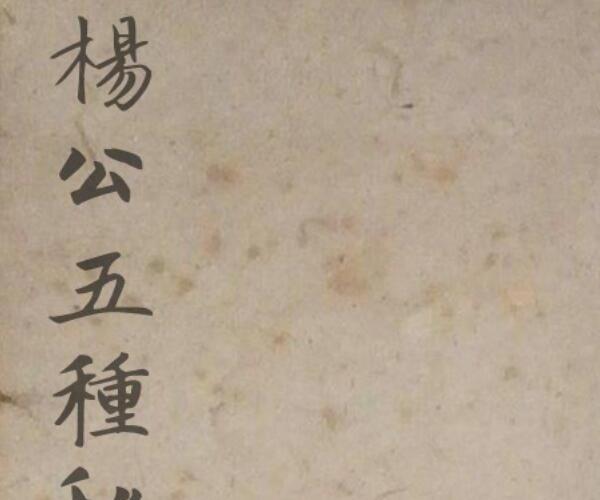 楊公五種